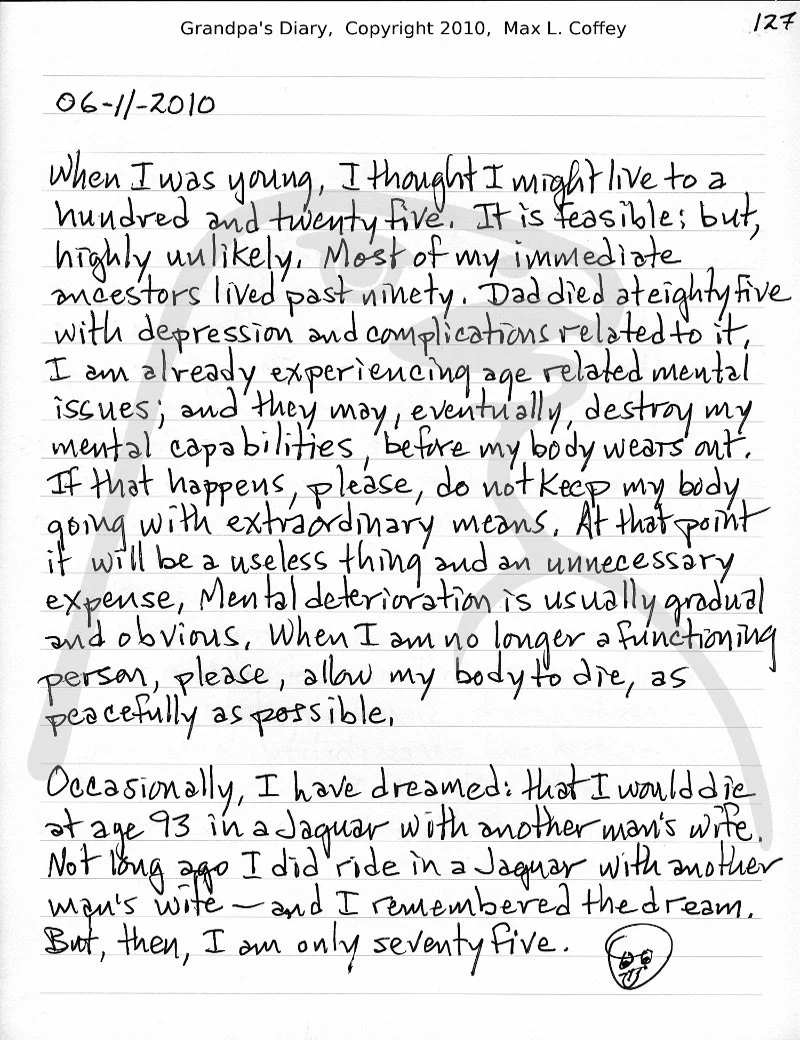 Grandpa's Diary, Copyright 2010, Max L. Coffey
127
06-11-2010
When I was young, I thought I might live to a
hundred and twenty five. It is feasible; but,
highly unlikely. Most of my immediate
ancestors lived past ninety. Dad died at eighty five
with depression and complications related to it.
I am already experiencing age related mental
issues; and they may, eventually, destroy my
mental capabilities, before my body wears out.
If that happens, please, do not keep my body
going with extraordinary means. At that point
it will be a useless thing and an unnecessary
expense. Mental deterioration is usually gradual
and obvious. When I am no longer a functioning
person, please, allow my body to die, as
peacefully as possible.
Occasionally, I have dreamed: that I would die
at age 93 in a Jaguar with another man's wife.
Not long ago I did ride in a Jaguar with another
man's wife — and I remembered the dream.
But, then, I am only seventy five.